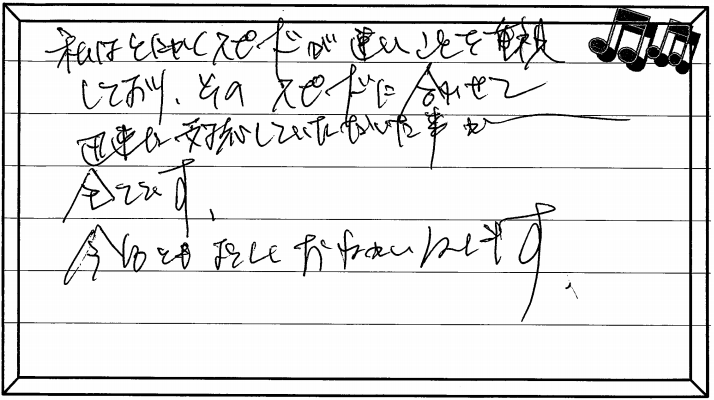 私はとにかくスピードが速いことを重視
しており、そのスピードに合わせて
迅速に対応していただいた事が
全てです。
今後ともよろしくおねがいします。